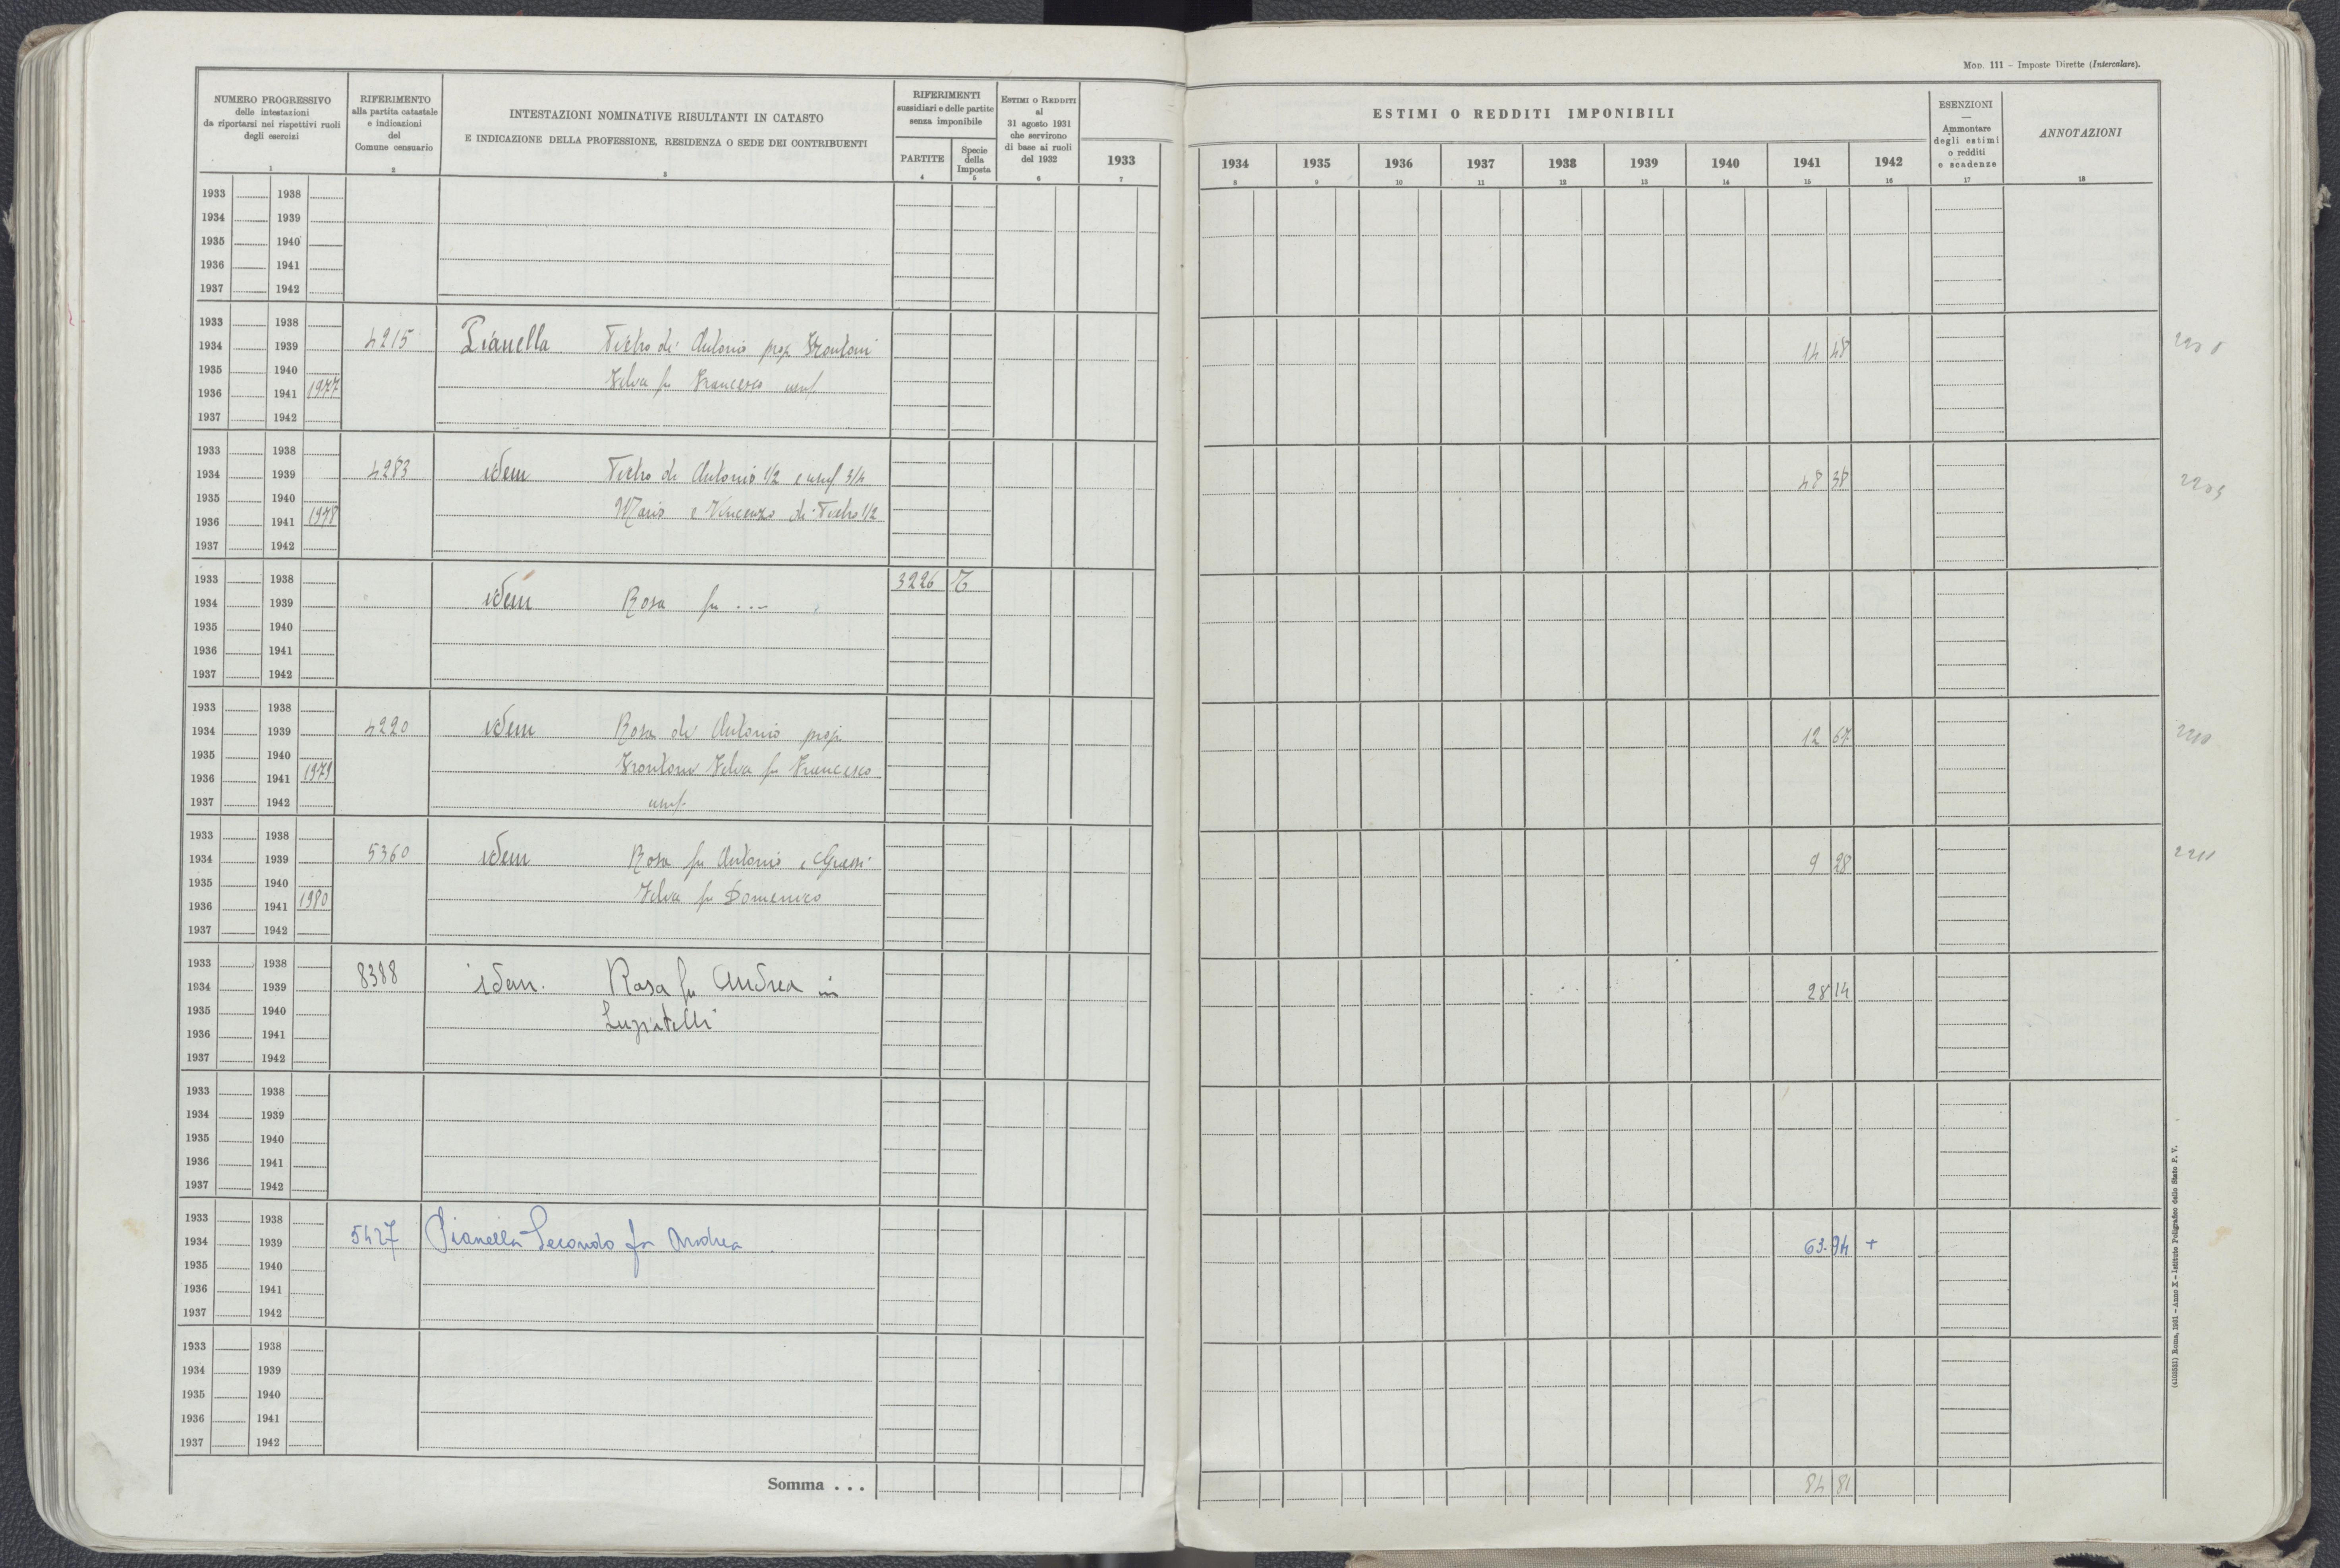 Mod. 111 – Imposte Dirette (Intercalare).
NUMERO PROGRESSIVO
delle intestazioni
da riportarsi nei rispettivi ruoli
degli esercizi
1
RIFERIMENTO
alla partita catastale
e indicazioni
del
Comune censuario
2
INTESTAZIONI NOMINATIVE RISULTANTI IN CATASTO
E INDICAZIONE DELLA PROFESSIONE, RESIDENZA O SEDE DEI CONTRIBUENTI
3
RIFERIMENTI
sussidiari e delle partite
senza imponibile
PARTITE
4
Specie
della
Imposta
5
Estimi o Redditi
al
31 agosto 1931
che servirono
di base ai ruoli
del 1932
6
1933
7
ESTIMI O REDDITI IMPONIBILI
1934 1935 1936 1937 1938 1939 1940 1941 1942
8 9 10 11 12 13 14 15 16
ESENZIONI
—
Ammontare
degli estimi
o redditi
e scadenze
17
ANNOTAZIONI
18
1933 1938
1934 1939
1935 1940
1936 1941
1937 1942
1933 1938
1934 1939 4215 Pianella Pietro di Antonio prop. Frontoni 14 48
1935 1940
1936 1941 1977 Velva fu Francesco usuf.
1937 1942
1933 1938
1934 1939 4283 idem Pietro di Antonio 1/2 e usuf 3/4 48 38
1935 1940
1936 1941 1978 Mario e Vincenzo di Pietro 1/2
1937 1942
1933 1938 3226 T.
1934 1939 idem Rosa fu ....
1935 1940
1936 1941
1937 1942
1933 1938
1934 1939 4220 idem Rosa di Antonio prop. 12 67 2210
1935 1940
1936 1941 1979 Frontoni Velva fu Francesco
1937 1942 usuf.
1933 1938
1934 1939 5360 idem Rosa fu Antonio e 9 28 2211
1935 1940
1936 1941 1980 Velva fu Domenico
1937 1942
1933 1938
1934 1939 8388 idem. Rosa fu Andrea in 28 14
1935 1940
1936 1941
1937 1942
1933 1938
1934 1939
1935 1940
1936 1941
1937 1942
1933 1938
1934 1939 5427 Pianella Secondo fu Andrea 63.94 +
1935 1940
1936 1941
1937 1942
1933 1938
1934 1939
1935 1940
1936 1941
1937 1942
Somma . . . 84 81
(4105531) Roma, 1931 – Anno X – Istituto Poligrafico dello Stato P. V.